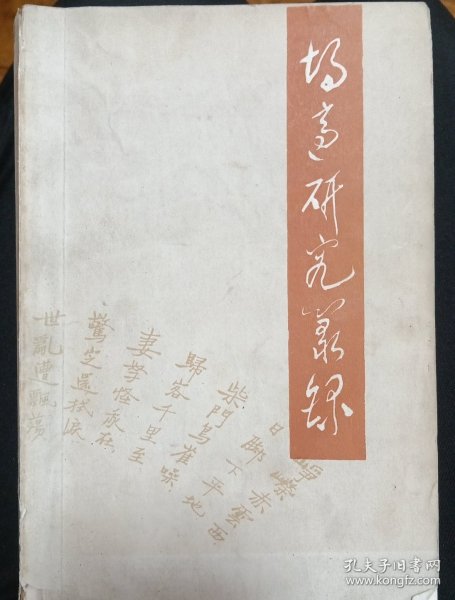 胡適研究叢錄
崢嶸赤雲西
日脚下平地
柴門鳥雀噪
歸客千里至
妻孥怪我在
驚定還拭淚
世亂遭飄蕩
孔夫子旧书网
www.kongfz.com